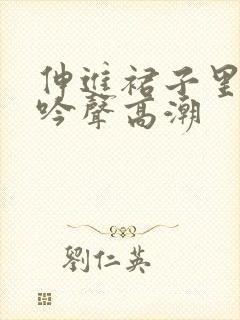 伸进裙子里
吟聲高潮
劉仁英